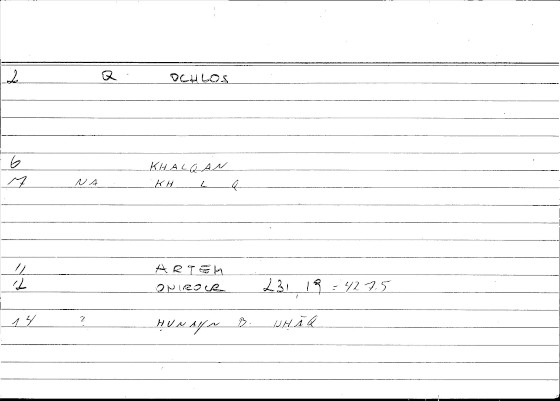 2 Q OCHLOS
6 KHALQAN
7 NA KH L Q
11 ARTEM
12 ONIROCR 231,19 = 427.5
14 ? HUNAYN B. ISHĀQ